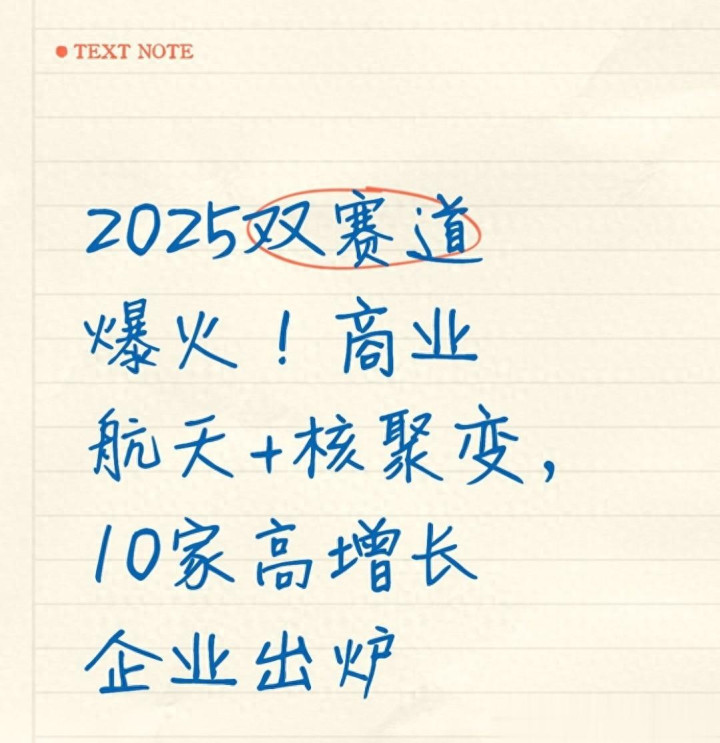 TEXT NOTE
2025双赛道
爆火！商业
航天+核聚变，
10家高增长
企业出炉